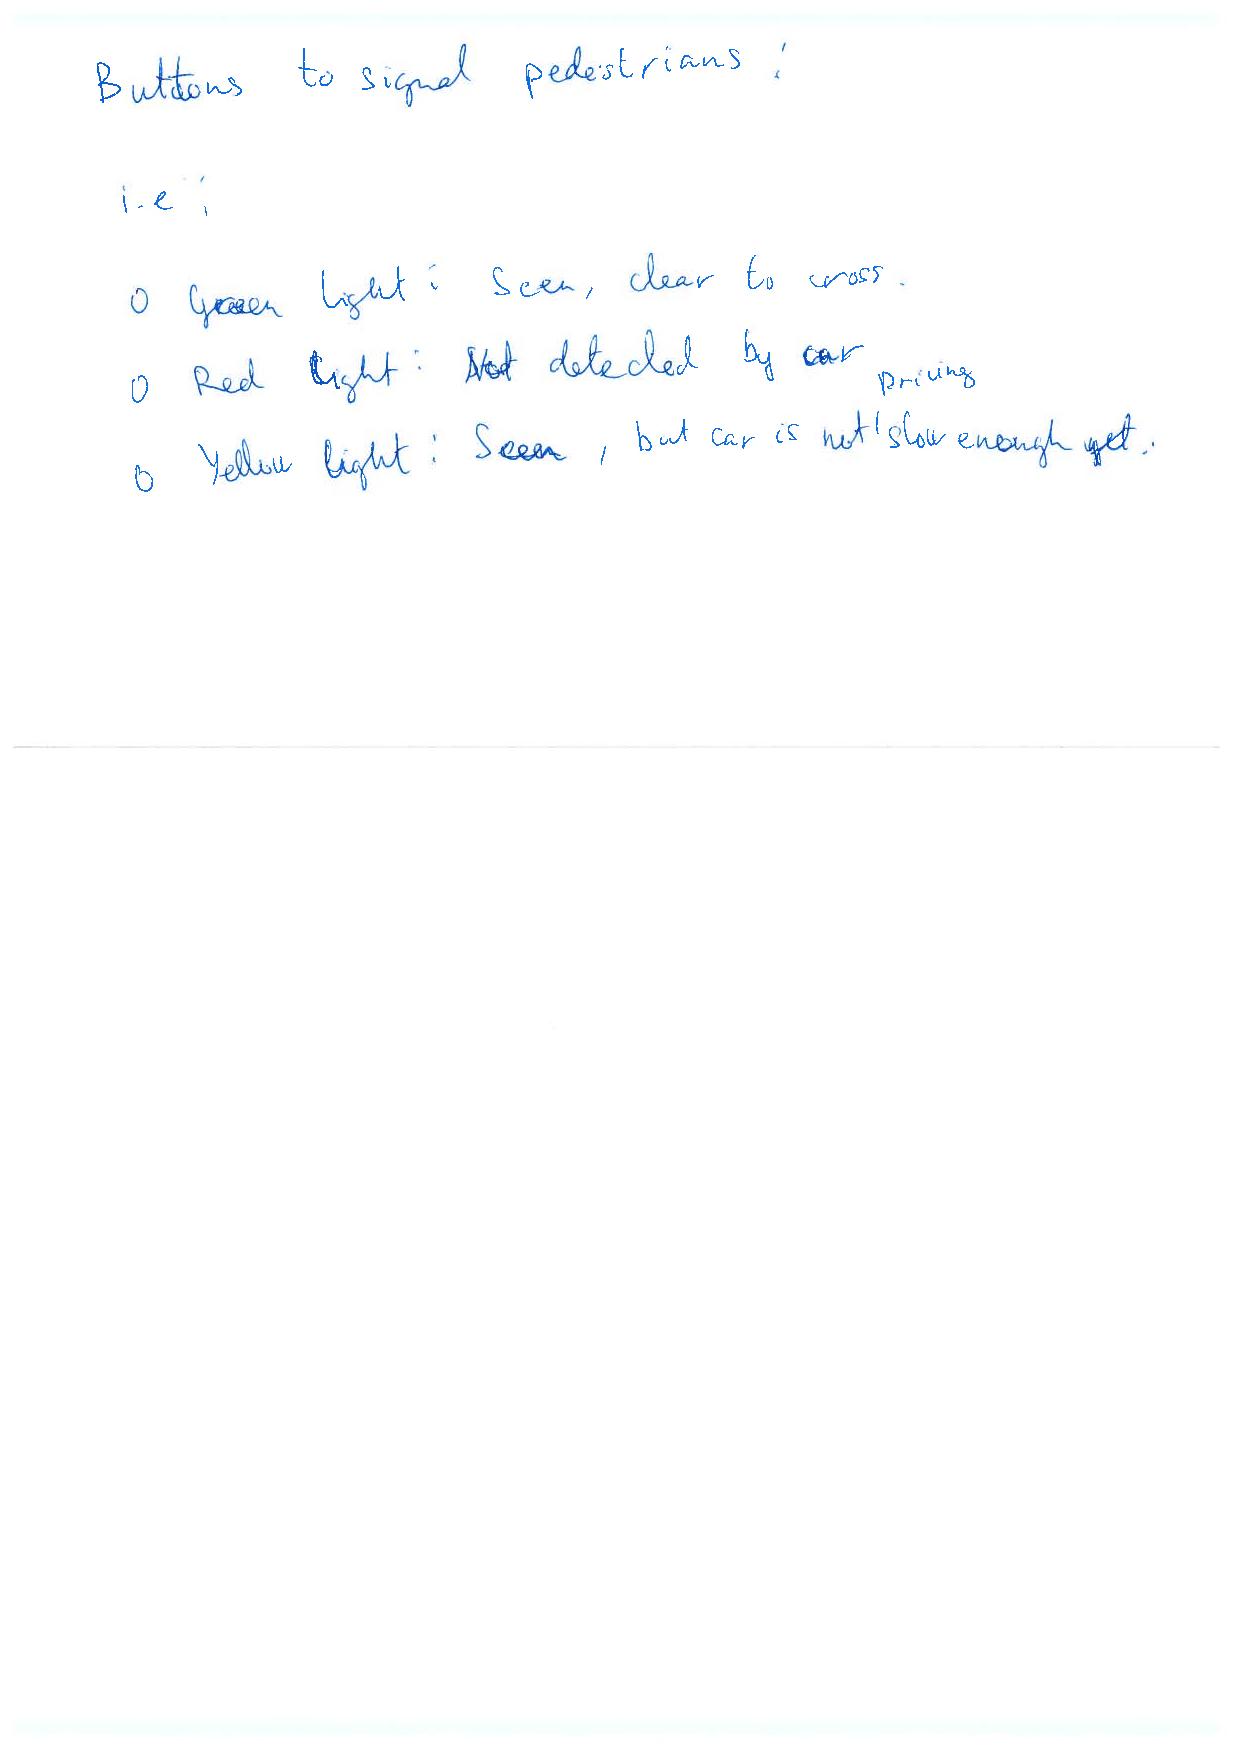 Buttons to signal pedestrians :
i.e :
o Green light : Seen, clear to cross.
o Red light : Not detected by car
driving
o Yellow light : Seen, but car is not slow enough yet.